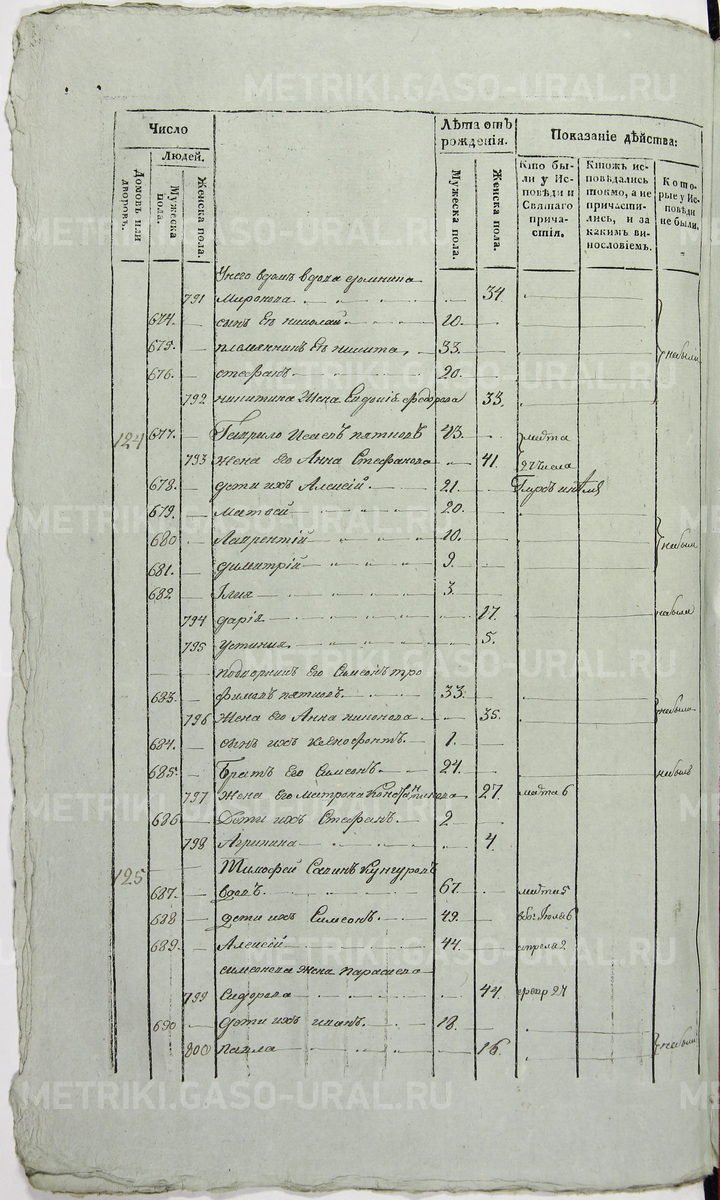 METRIKI.GASO-URAL.RU
Число
Лѣта отъ рожденія.
Показаніе дѣйства:
Людей.
Домовъ или дворовъ.
Мужеска пола.
Женска пола.
Мужеска пола.
Женска пола.
Кто были у Исповѣди и Святаго причастія.
Ктожъ исповѣдались токмо, а не причастились, и за какимъ винословіемъ.
Которые у Исповѣди не были.
Унего вдомѣ вдова домнина
791 Миронова 34.
674. сынъ Ея николай 10.
675. племянникъ Ея никита 33. небыли
676. стефанъ 20.
792 никитина жена Евдокія федорова 33.
124 677. Гаврило Исаевъ пятковъ 43. марта
793 жена его Анна Стефанова 41. 27 числа
678. дети ихъ Алексій 21.
679. матвей 20.
680 Лаврентій 10. небыли
681. димитрій 9.
682 Илия 3.
794 дарія 17. небыла
795 устиния 5.
подворникъ Его Симеонъ тро
683. фимовъ пятковъ 33.
796 Жена его Анна никонова 35. небыли
684. сынъ ихъ ксенофонтъ 1.
685. Братъ Его Симеонъ 24. небылъ
797 жена Его матрона 27. марта 6
686 Дети ихъ Стефанъ 2
798 Агрипина 4
125 Тимофей Савинъ Кунгуровъ
687. вдовъ 67. марта 5
688 дети ихъ Симеонъ 49. 6
689. Алексій 44. апреля 2
симеонова жена параскева
799 Сидорова 44 февр 27
690 дети ихъ иванъ 18.
800 павла 16. небыли